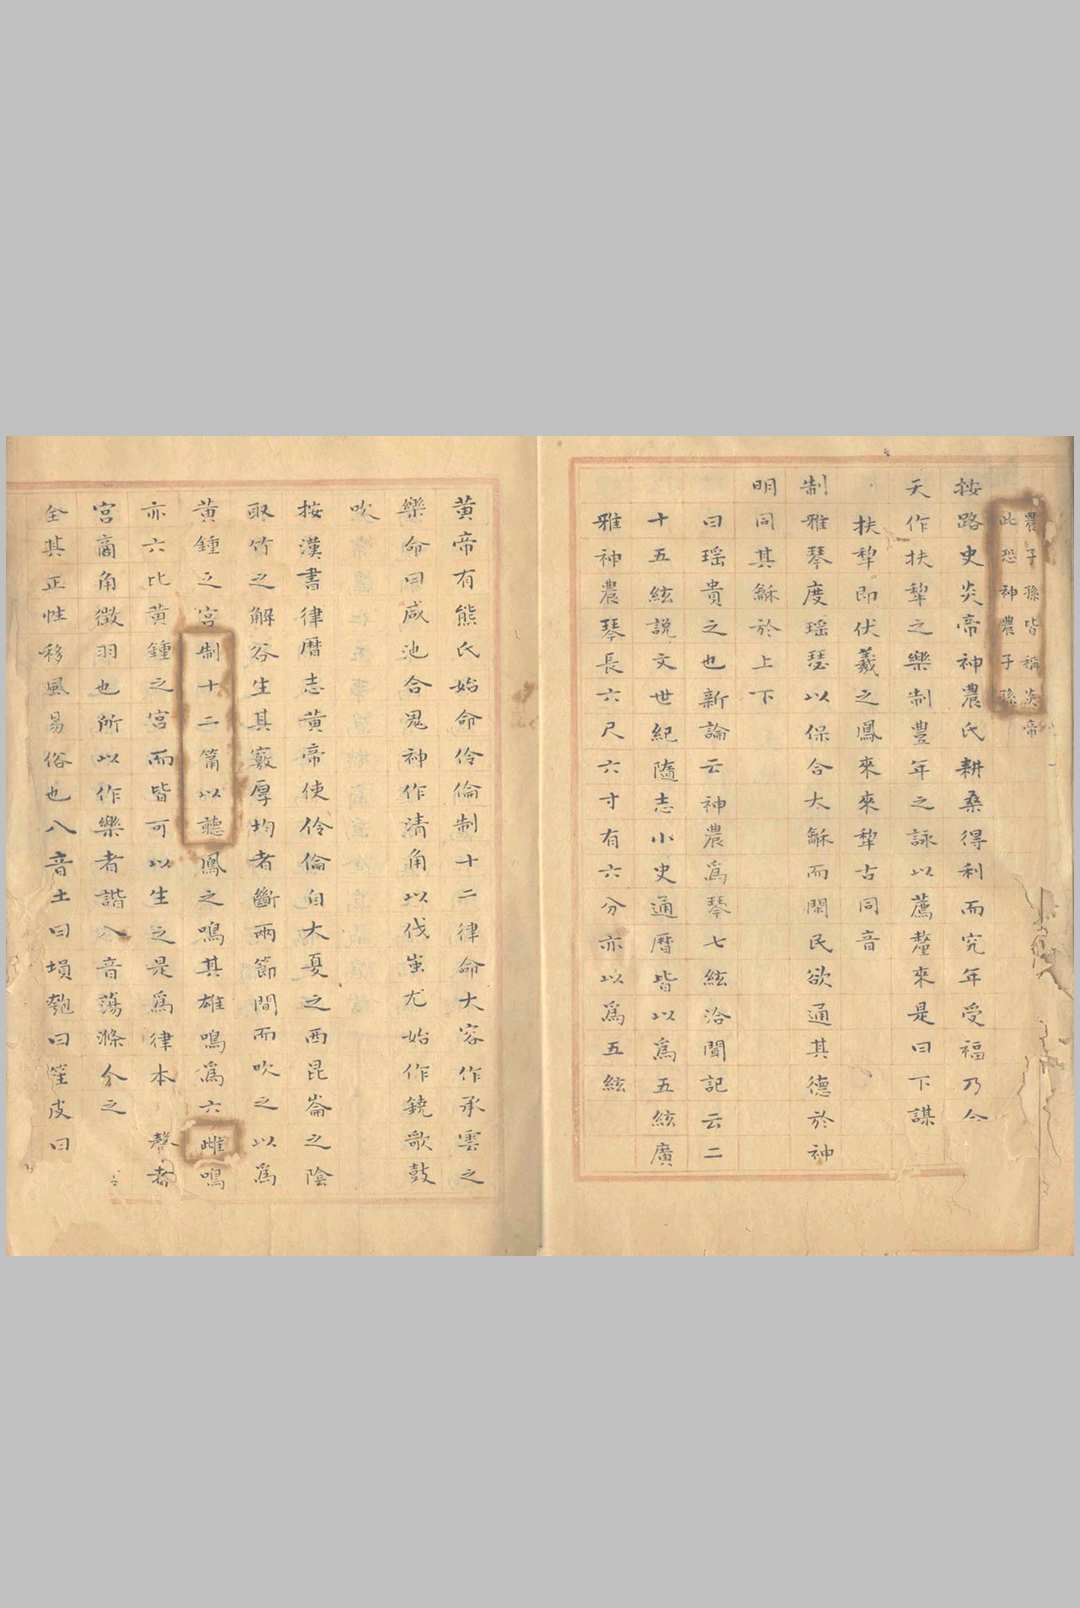 農子孫皆稱炎帝
此恐神農子孫
按路史炎帝神農氏耕桑得利而究年受福乃令
天作扶犂之樂制豐年之詠以薦釐來是曰下謀
扶犂即伏羲之鳳來來犂古同音
制雅琴度瑶瑟以保合大龢而閑民欲通其德於神
明同其龢於上下
曰瑶貴之也新論云神農爲琴七絃洽聞記云二
十五絃説文世紀隨志小史通暦皆以爲五絃廣
雅神農琴長六尺六寸有六分亦以爲五絃
黄帝有熊氏始命伶倫制十二律命大容作承雲之
樂命曰咸池合鬼神作清角以伐蚩尤始作鐃歌鼓
吹
按漢書律暦志黄帝使伶倫自大夏之西昆崙之陰
取竹之解谷生其竅厚均者斷兩節間而吹之以爲
黄鍾之宮制十二筩以聽鳳之鳴其雄鳴爲六雌鳴
亦六比黄鍾之宮而皆可以生之是爲律本 聲者
宮商角徵羽也所以作樂者諧八音蕩滌人之
全其正性移風易俗也八音土曰塤匏曰笙皮曰